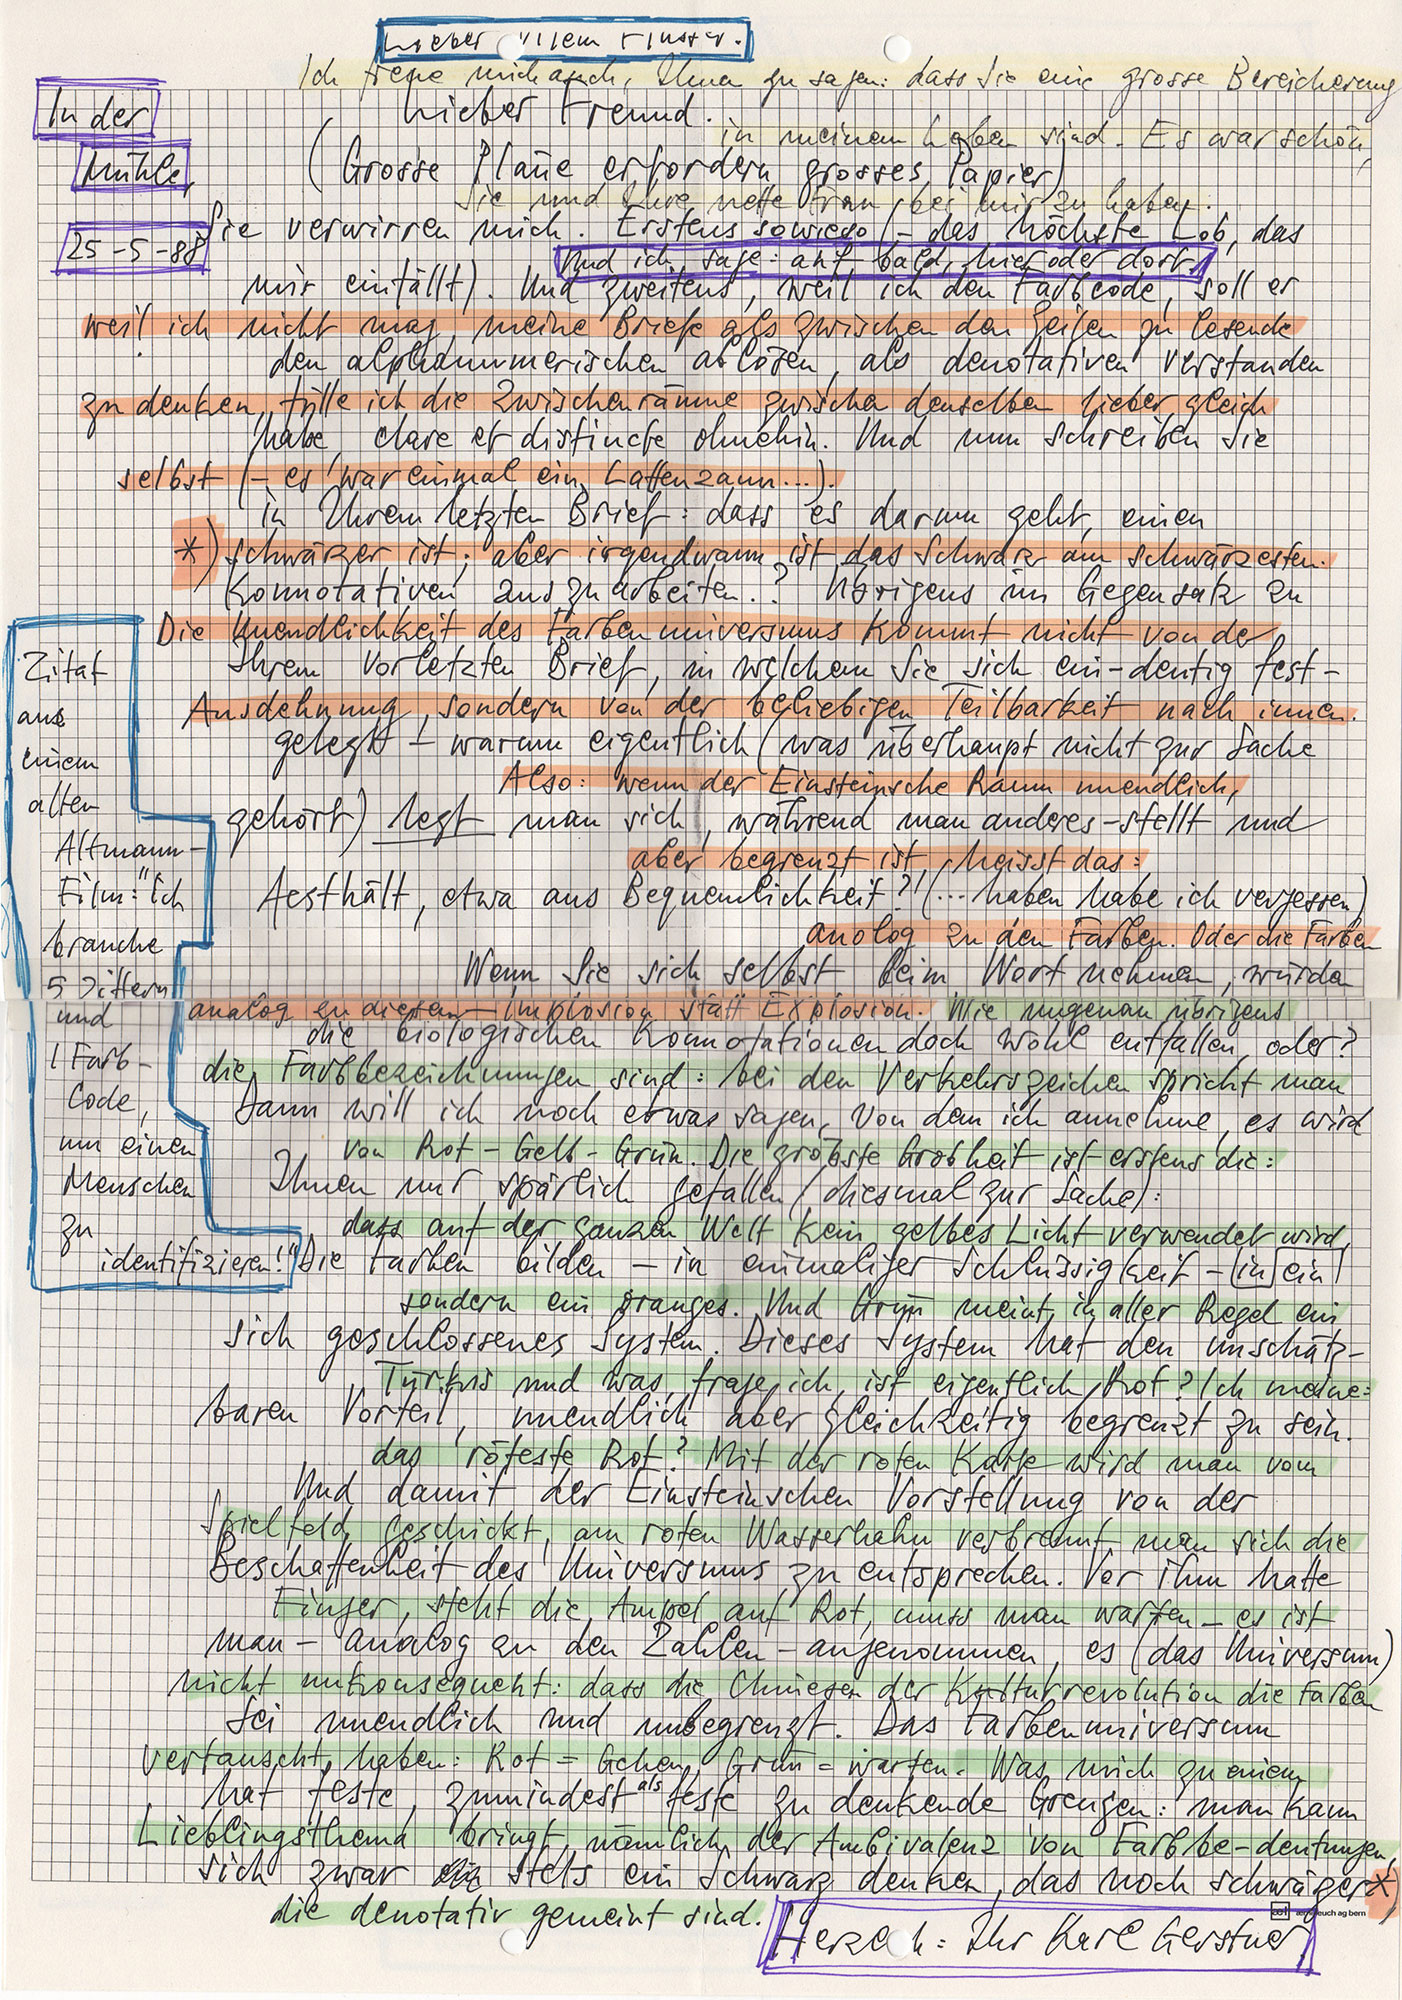 Lieber Vilem Flusser.
Ich freue mich auch, Ihnen zu sagen: dass Sie eine grosse Bereicherung
In der
Lieber Freund.
in meinem Leben sind. Es war schön,
Mühle,
(Grosse Pläne erfordern grosses Papier)
Sie und Ihre nette Frau bei mir zu haben.
25-5-88
Sie verwirren mich. Erstens sowieso (- das höchste Lob, das
Und ich sage: auf bald, hier oder dort.
mir einfällt). Und zweitens, weil ich den Farbcode, soll er
weil ich nicht mag, meine Briefe als zwischen den Zeilen zu lesende
den alphanumerischen ablösen, als denotativen verstanden
zu denken, fülle ich die Zwischenräume zwischen denselben lieber gleich
habe, clare et distincte ohnehin. Und nun schreiben Sie
selbst (- es war einmal ein Lattenzaun...).
in Ihrem letzten Brief: dass es darum geht, einen
*) schwärzer ist; aber irgendwann ist das Schwarz am schwärzesten.
Konnotativen auszuarbeiten..? Übrigens im Gegensatz zu
Die Unendlichkeit des Farbenuniversums kommt nicht von der
Ihrem vorletzten Brief, in welchem Sie sich ein-deutig fest-
Ausdehnung, sondern von der beliebigen Teilbarkeit nach innen.
gelegt - warum eigentlich (was überhaupt nicht zur Sache
Also: wenn der Einsteinsche Raum unendlich,
gehört) legt man sich, während man anderes -stellt und
aber begrenzt ist, heisst das:
Aesthält, etwa aus Bequemlichkeit?! (... haben habe ich vergessen)
analog zu den Farben. Oder die Farben
Wenn Sie sich selbst beim Wort nehmen, würden
analog zu diesem - Implosion statt Explosion. Wie ungenau übrigens
die biologischen Konnotationen doch wohl entfallen, oder?
die Farbbezeichnungen sind: bei den Verkehrszeichen spricht man
Dann will ich noch etwas sagen, von dem ich annehme, es wird
von Rot - Gelb - Grün. Die gröbste Grobheit ist erstens die:
Ihnen nur spärlich gefallen (diesmal zur Sache):
dass auf der ganzen Welt kein gelbes Licht verwendet wird,
Die Farben bilden - in einmaliger Schlüssigkeit - (in) ein
sondern ein oranges. Und Grün meint in aller Regel ein
sich geschlossenes System. Dieses System hat den unschätz-
Türkis und was, frage ich, ist eigentlich Rot? Ich meine:
baren Vorteil, unendlich aber gleichzeitig begrenzt zu sein.
das röteste Rot? Mit der roten Karte wird man vom
Und damit der Einsteinschen Vorstellung von der
Spielfeld geschickt, am roten Wasserhahn verbrennt man sich die
Beschaffenheit des Universums zu entsprechen. Vor ihm hatte
Finger, steht die Ampel auf Rot, muss man warten - es ist
man - analog zu den Zahlen - angenommen, es (das Universum)
nicht unkonsequent: dass die Chinesen der Kulturrevolution die Farben
sei unendlich und unbegrenzt. Das Farbenuniversum
vertauscht haben: Rot = Gehen, Grün = warten. Was mich zu einem
hat feste, zumindest als feste zu denkende Grenzen: man kann
Lieblingsthema bringt, nämlich der Ambivalenz von Farbbe-deutungen,
sich zwar stets ein Schwarz denken, das noch schwärzer *)
die denotativ gemeint sind.
Herzlich: Ihr Karl Gerstner
Zitat
aus
einem
alten
Altmann-
Film: "Ich
brauche
5 Ziffern
und
1 Farb-
Code,
um einen
Menschen
zu
identifizieren!"